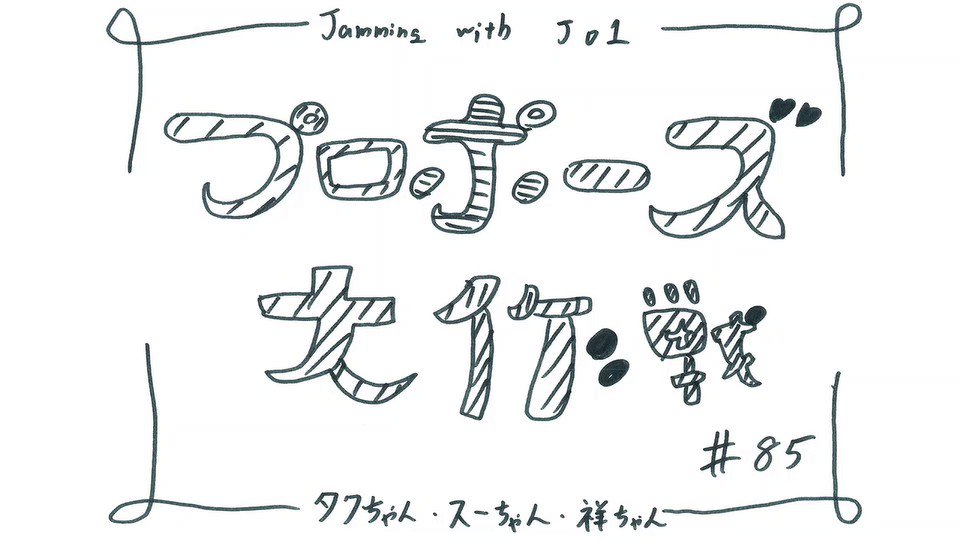 Jamming with JO1
プロポーズ
大作戦
#85
タクちゃん・スーちゃん・祥ちゃん